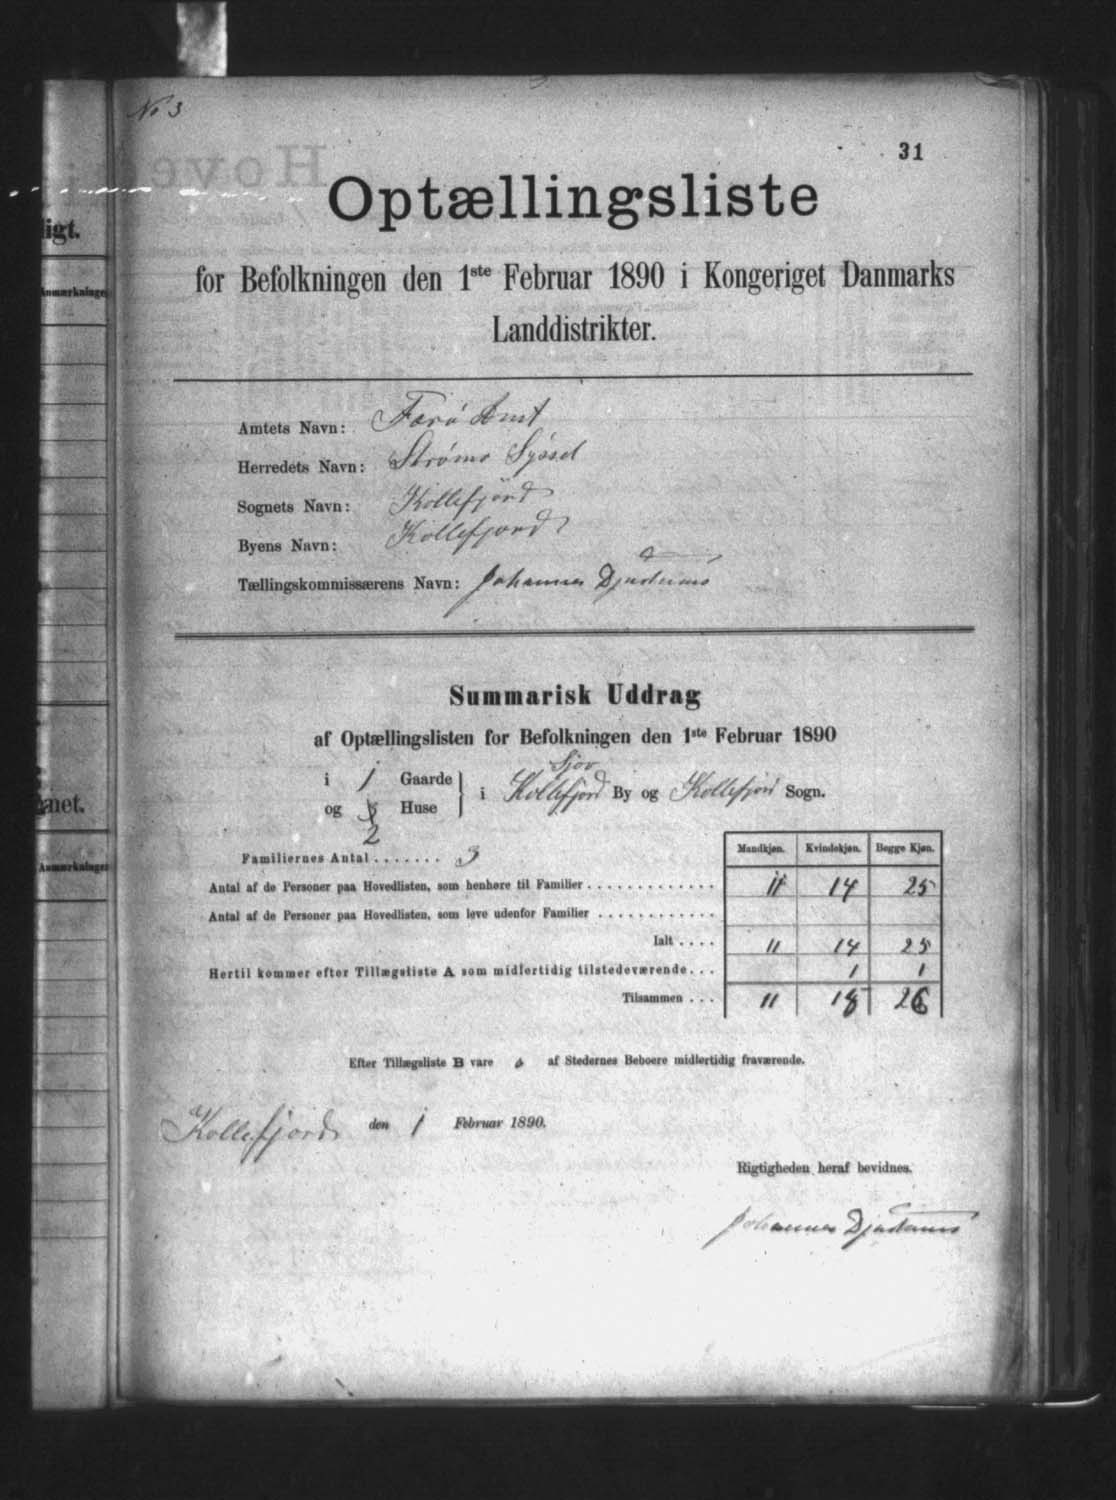 No 3
31
Optællingsliste
for Befolkningen den 1ste Februar 1890 i Kongeriget Danmarks
Landdistrikter.
Amtets Navn: Færö Amt
Herredets Navn: Strømø Sÿssel
Sognets Navn: Kollefjörd
Byens Navn: Kollefjord
Tællingskommissærens Navn: Johannes
Summarisk Uddrag
af Optællingslisten for Befolkningen den 1ste Februar 1890
i 1 Gaarde
og 2 Huse
i Kollefjord By og Kollefjord Sogn.
Sjov
Mandkjøn. Kvindekjøn. Begge Kjøn.
Familiernes Antal . . . . . . . 3
Antal af de Personer paa Hovedlisten, som henhøre til Familier . . . . . . . . . . . . . 11 14 25
Antal af de Personer paa Hovedlisten, som leve udenfor Familier . . . . . . . . . . . .
Ialt . . . . 11 14 25
Hertil kommer efter Tillægsliste A som midlertidig tilstedeværende. . . 1 1
Tilsammen . . . 11 15 26
Efter Tillægsliste B vare 0 af Stedernes Beboere midlertidig fraværende.
Kollefjord den 1 Februar 1890.
Rigtigheden heraf bevidnes.
Johannes
igt.
Anmærkninger
net.
Anmærkninger